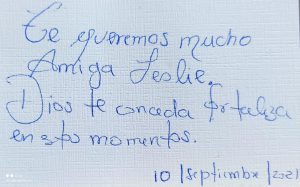 Te queremos mucho
Amiga Leslie.
Dios te conceda fortaleza
en estos momentos.
10 / septiembre / 2021